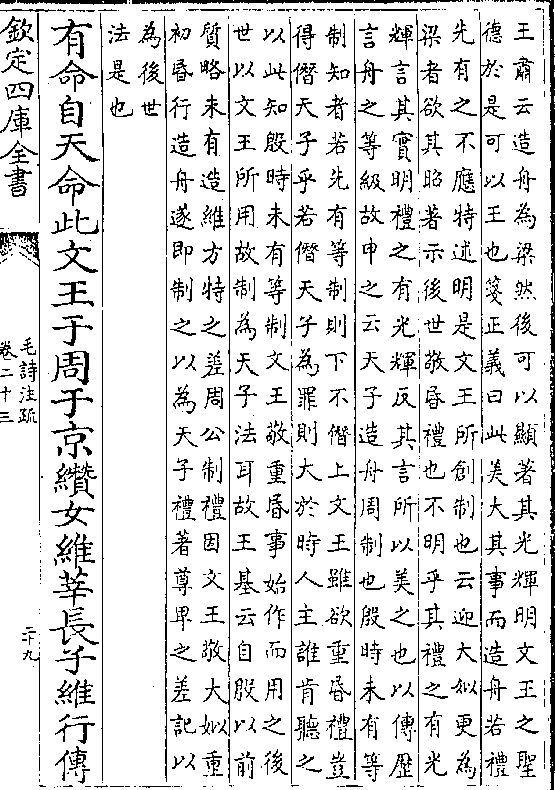 王肅云造舟為梁然後可以顯著其光輝明文王之聖
德於是可以王也箋正義曰此美大其事而造舟若禮
先有之不應特述明是文王所創制也云迎大姒更為
梁者欲其昭著示後世敬昏禮也不明乎其禮之有光
輝言其實明禮之有光輝反其言所以美之也以傳歴
言舟之等級故申之云天子造舟周制也殷時未有等
制知者若先有等制則下不僭上文王雖欲重昏禮豈
得僭天子乎若僭天子為罪則大於時人主誰肯聽之
以此知殷時未有等制文王敬重昏事始作而用之後
世以文王所用故制為天子法耳故王基云自殷以前
質略未有造維方特之差周公制禮因文王敬大姒重
初昏行造舟遂即制之以為天子禮著尊卑之差記以
為後世
法是也
有命自天命此文王于周于京纘女維莘長子維行傳
欽定四庫全書
毛詩注疏
卷二十三
二十九